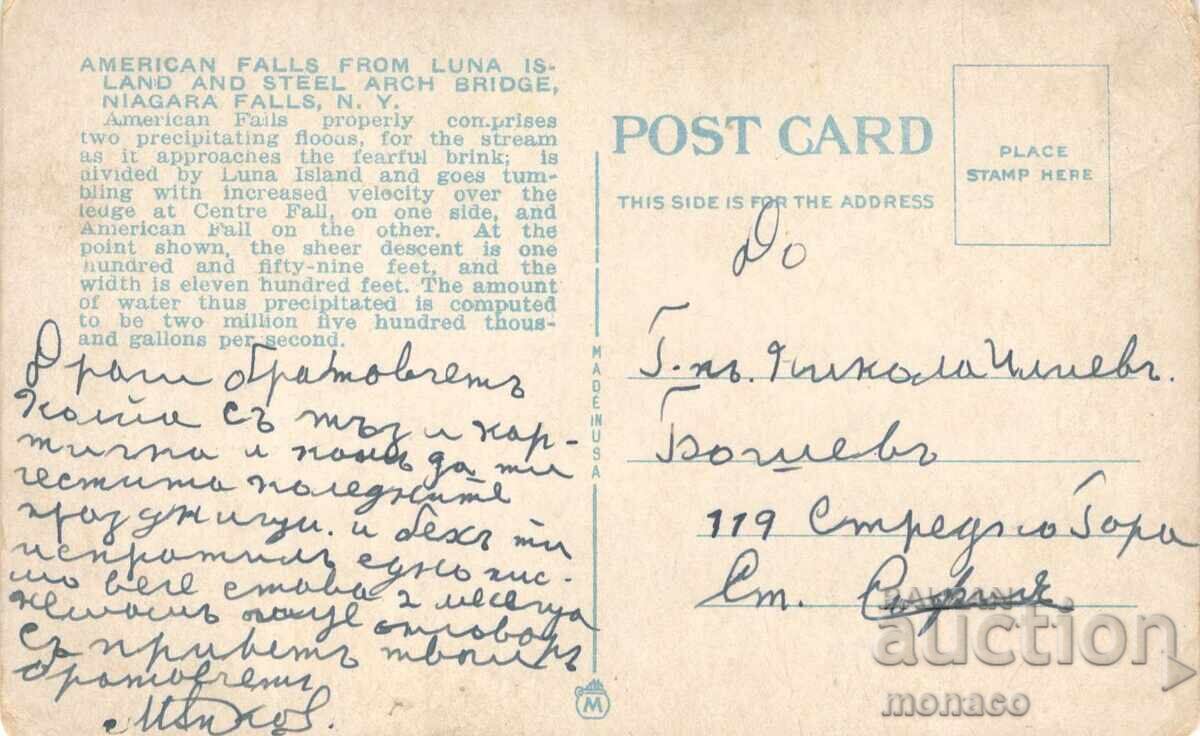 AMERICAN FALLS FROM LUNA IS-
LAND AND STEEL ARCH BRIDGE,
NIAGARA FALLS, N. Y.
American Falls properly comprises
two precipitating floods, for the stream
as it approaches the fearful brink; is
divided by Luna Island and goes tum-
bling with increased velocity over the
ledge at Centre Fall, on one side, and
American Fall on the other. At the
point shown, the sheer descent is one
hundred and fifty-nine feet, and the
width is eleven hundred feet. The amount
of water thus precipitated is computed
to be two million five hundred thous-
and gallons per second.
Драги братовчетъ
Колйа съ тъзи кар-
тичка и да ти
честита коледните
празджници. и бехъ ти
испратилъ едно пис-
мо вече става 2 месеца
немамъ отговоръ
съ приветъ твои
братовчетъ
MADE IN USA
M
POST CARD
THIS SIDE IS FOR THE ADDRESS
PLACE
STAMP HERE
До
Г-нъ. Никола Илиевъ.
Бошевъ
119 Стредно Гора
Ст. София
BALKAN
auction
monaco